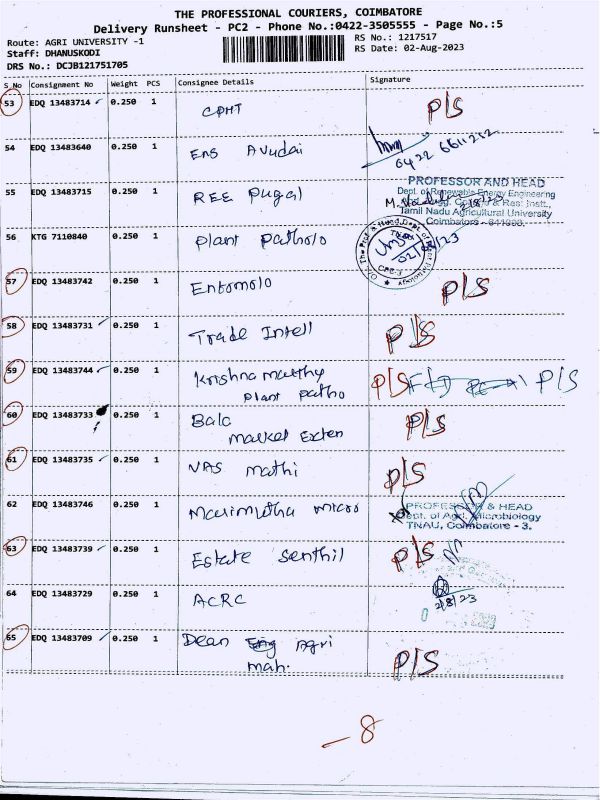 THE PROFESSIONAL COURIERS, COIMBATORE
Delivery Runsheet - PC2 - Phone No.:0422-3505555 - Page No.:5
Route: AGRI UNIVERSITY -1
RS No.: 1217517
Staff: DHANUSKODI
RS Date: 02-Aug-2023
DRS No.: DCJB121751705
S No Consignment No Weight PCS Consignee Details Signature
53 EDQ 13483714 0.250 1 CPHT P/S
54 EDQ 13483640 0.250 1 Ens Avudai
0422 6611212
55 EDQ 13483715 0.250 1 REE Pugal
PROFESSOR AND HEAD
Dept. of Renewable Energy Engineering
Agrl. Engg. College & Res. Instt.,
Tamil Nadu Agricultural University
Coimbatore - 641003.
56 KTG 7110840 0.250 1 plant patholo
02/08/23
57 EDQ 13483742 0.250 1 Entomolo P/S
58 EDQ 13483731 0.250 1 Trade Intell P/S
59 EDQ 13483744 0.250 1 Krishna murthy P/S P/S
plant patho
60 EDQ 13483733 0.250 1 Bala P/S
market Exten
61 EDQ 13483735 0.250 1 VAS mathi P/S
62 EDQ 13483746 0.250 1 Marimutha micro
PROFESSOR & HEAD
Dept. of Agrl. Microbiology
TNAU, Coimbatore - 3.
63 EDQ 13483739 0.250 1 Estate Senthil P/S
64 EDQ 13483729 0.250 1 ACRC
2/8/23
65 EDQ 13483709 0.250 1 Dean Eng Agri P/S
mah.
- 8